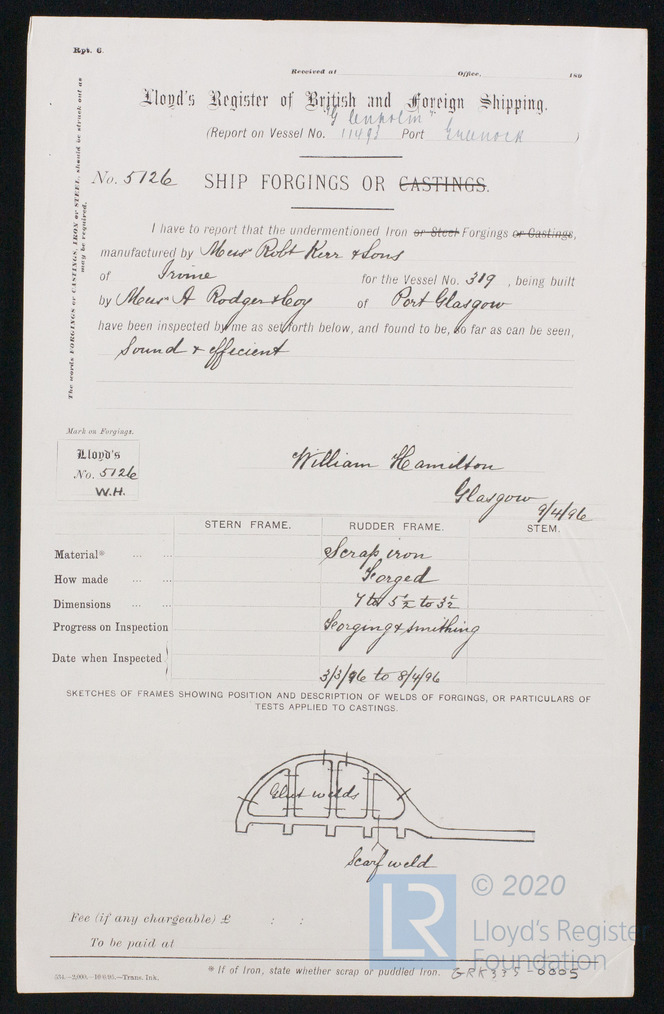 Rpt. 6.
Received at Office, 189
Lloyd's Register of British and Foreign Shipping.
"Glenholm"
(Report on Vessel No. 11493 Port Greenock )
No. 5126 SHIP FORGINGS OR CASTINGS.
The words FORGINGS or CASTINGS, IRON or STEEL, should be struck out as
may be required.
I have to report that the undermentioned Iron or Steel Forgings or Castings,
manufactured by Messrs Robt Kerr & Sons
of Irvine for the Vessel No. 319, being built
by Messrs A Rodger & Coy of Port Glasgow
have been inspected by me as set forth below, and found to be, so far as can be seen,
Sound & efficient
Mark on Forgings.
Lloyd's
No. 5126
W.H.
William Hamilton
Glasgow
9/4/96
STERN FRAME. RUDDER FRAME. STEM.
Material* ... ... Scrap iron
How made ... ... Forged
Dimensions ... ... 7 to 5 1/2 to 3 1/2
Progress on Inspection Forging & smithing
Date when Inspected 3/3/96 to 8/4/96
SKETCHES OF FRAMES SHOWING POSITION AND DESCRIPTION OF WELDS OF FORGINGS, OR PARTICULARS OF
TESTS APPLIED TO CASTINGS.
Glut welds
Scarf weld
Fee (if any chargeable) £ : :
To be paid at
* If of Iron, state whether scrap or puddled Iron.
534.—2,000.—10/6/95.—Trans. Ink.
GRK335-0005
LR
© 2020
Lloyd's Register
Foundation